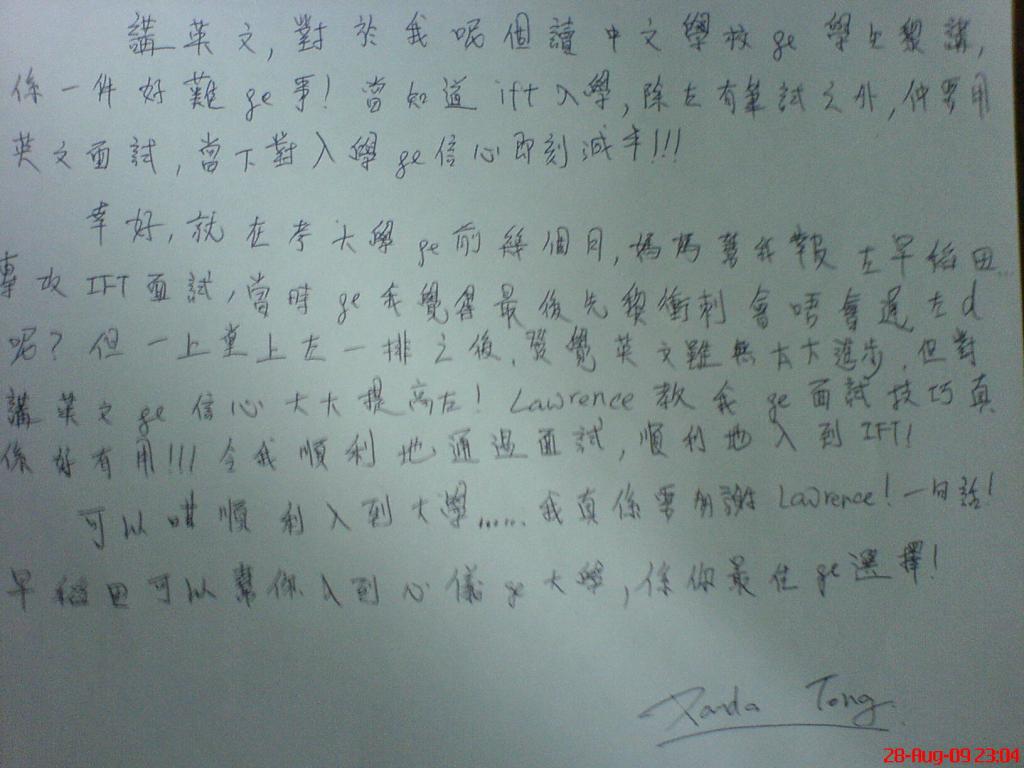 講英文,對於我呢個讀中文學校ge學生黎講,
係一件好難ge事!當知道ift入學,除左有筆試之外,仲要用
英文面試,當下對入學ge信心即刻減半!!!
幸好,就在考大學ge前幾個月,媽媽幫我報左早稻田...
專攻IFT面試,當時ge我覺得最後先黎衝刺會唔會遲左d
呢?但一上堂上左一排之後,發覺英文雖無太大進步,但對
講英文ge信心大大提高左!Lawrence教我ge面試技巧真
係好有用!!!令我順利地通過面試,順利地入到IFT!
可以咁順利入到大學......我真係要多謝Lawrence!一句話!
早稻田可以幫你入到心儀ge大學,係你最佳ge選擇!
Tong
28-Aug-09 23:04